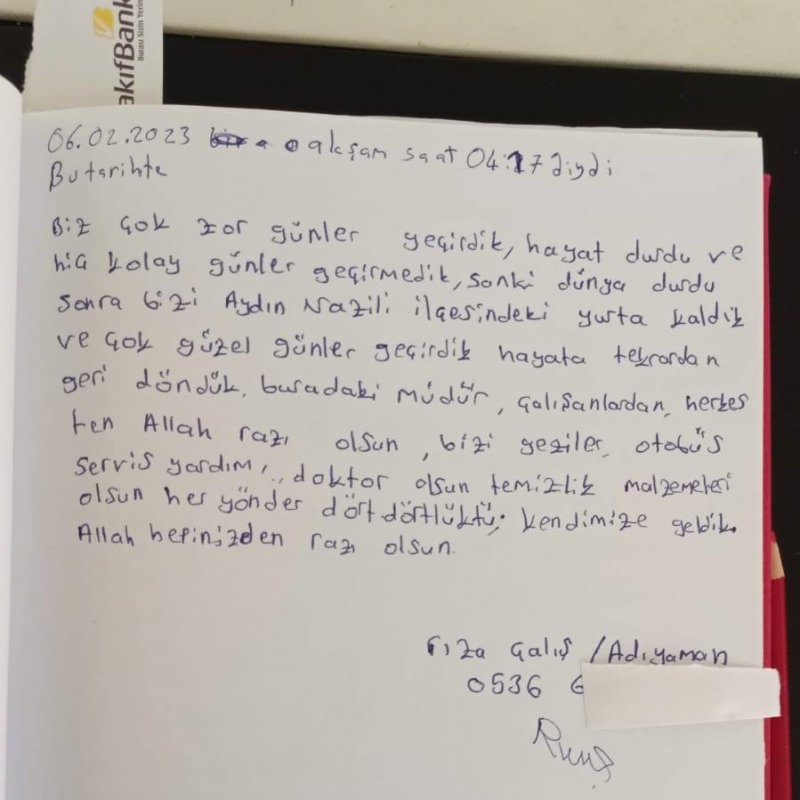 akıfBank
Burası Sizin Yeriniz
06.02.2023 o akşam saat 04:17 diydi
Bu tarihte
Biz çok zor günler geçirdik, hayat durdu ve
hiç kolay günler geçirmedik, sanki dünya durdu
sonra bizi Aydın Nazili ilçesindeki yurta kaldık
ve çok güzel günler geçirdik hayata tekrardan
geri döndük, buradaki müdür, çalışanlardan, herkes
ten Allah razı olsun, bizi geziler, otobüs
servis yardımı, doktor olsun temizlik malzemeleri
olsun her yönder dörtdörtlüktü, kendimize geldik.
Allah hepinizden razı olsun.
rıza Çalış / Adıyaman
0536 6